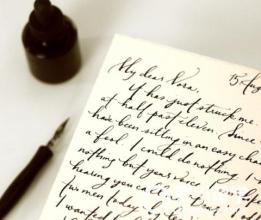 My dear Nora, 15 Aug
It has just struck me
at half past eleven. Since
have been sitting in an easy chair
a fool. I could do nothing. I
nothing but your voice
hearing you call
two men today
I wanted